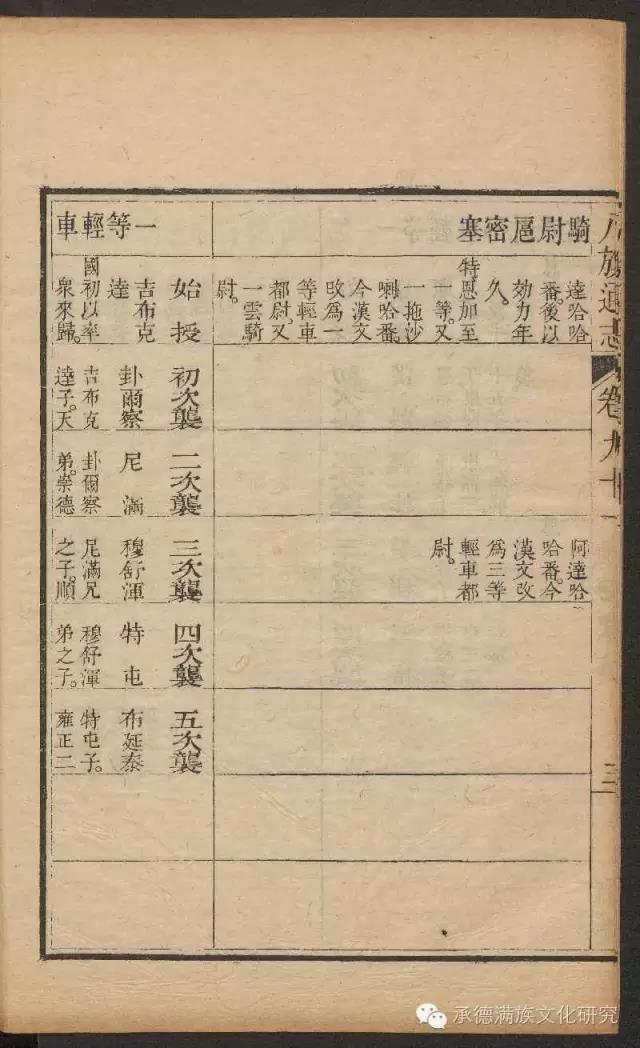 八旗通志
卷九十一
三
騎尉扈密塞
達哈哈
番後以
効力年
久。
特恩加至
一等。又
一拖沙
喇哈番。
今漢文
攺爲一
等輕車
都尉。又
一雲騎
尉。
阿達哈
哈番。今
漢文改
爲三等
輕車都
尉。
一等輕車
始授
吉布克
達
國初以率
衆來歸。
初次襲
卦爾察
吉布克
達子。天
二次襲
尼滿
卦爾察
弟。崇德
三次襲
穆舒渾
尼滿兄
之子。順
四次襲
特屯
穆舒渾
弟之子。
五次襲
布延泰
特屯子。
雍正二
承德满族文化研究